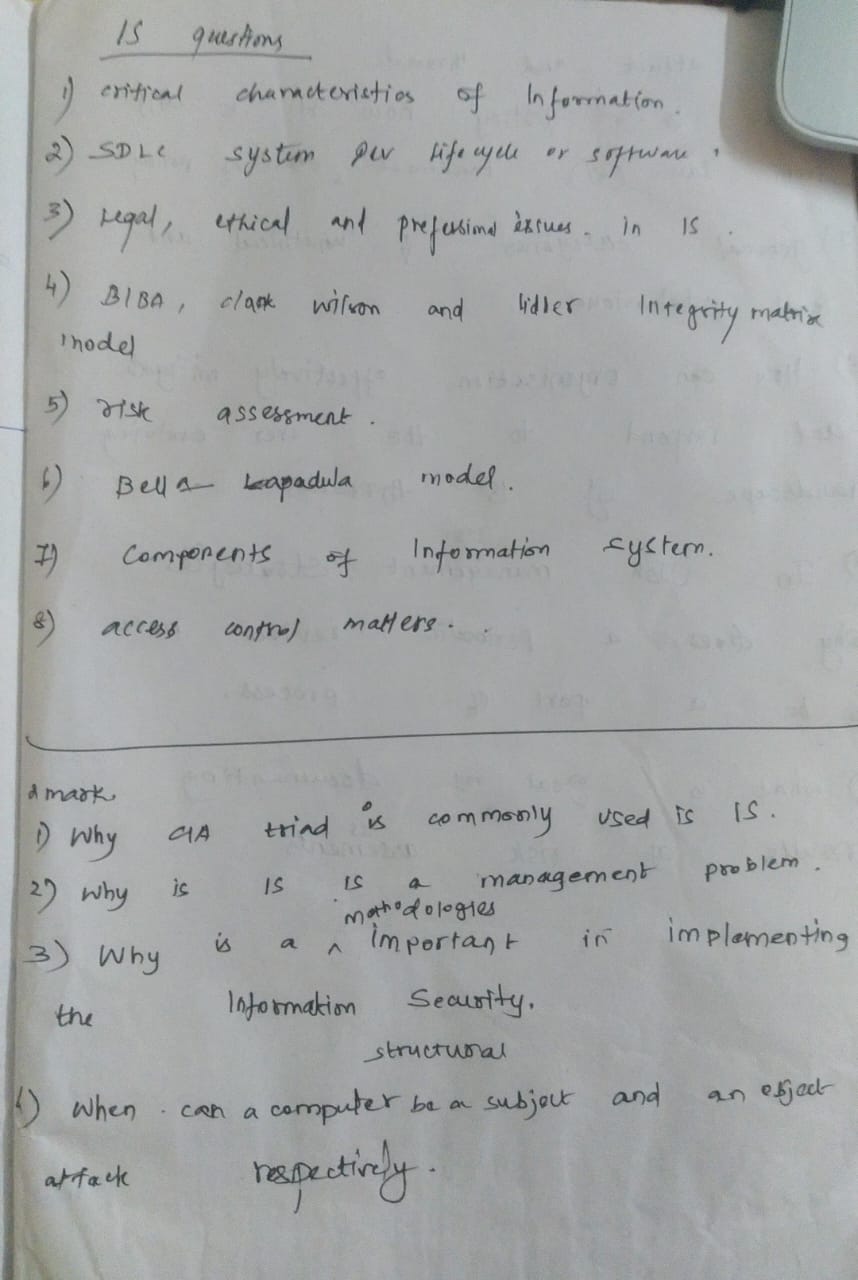 IS questions
1) critical characteristics of Information.
2) SDLC system dev life cycle or software
3) Legal, ethical and prefessional issues. in IS.
4) BIBA, clark wilson and lidler Integrity matrix
model
5) risk assessment.
6) Bell a Lapadula model.
7) Components of Information system.
8) access control matters.
2 mark
1) Why CIA triad is commonly used is IS.
2) Why is IS IS a management problem.
mathodologies
3) Why is a ^ important in implementing
the Information Security.
structural
4) When can a computer be a subject and an object
attack respectively.